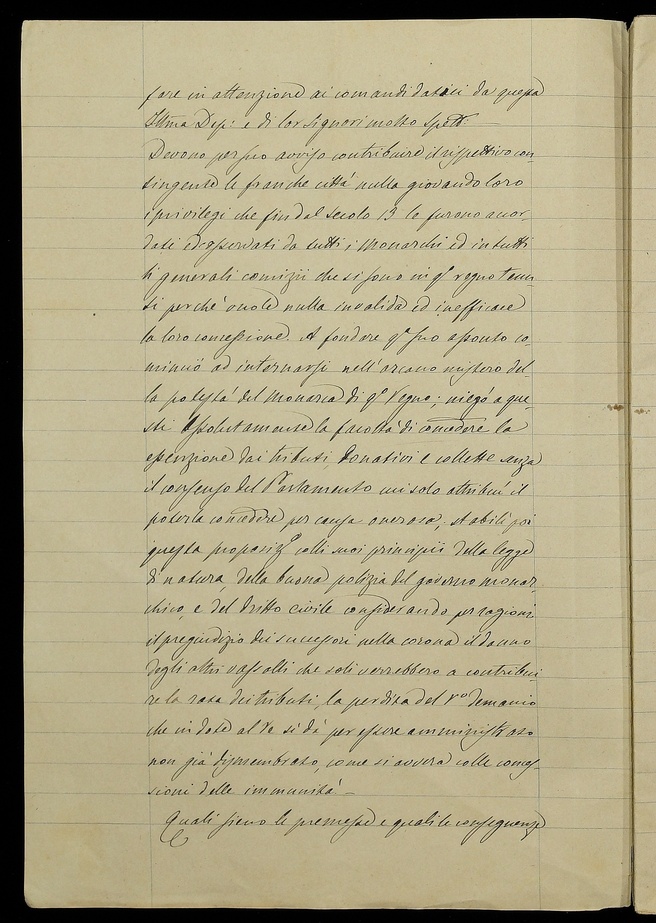 fare in attenzione ai comandi datici da questa
Ill.ma Dep: e di lor signori molto spett:
Devono per suo avviso contribuire il rispettivo con-
tingente le franche città nulla giovando loro
i privilegi che fin dal secolo 13 le furono accor-
dati ed osservati da tutti i Monarchi ed in tutti
li generali comizii che si sono in q.o regno tenu-
ti perchè vuole nulla invalida ed inefficace
la loro concessione. A fondare q.o suo assonto co-
minciò ad internarsi nell'arcano mistero del-
la potestà del Monarca di q.o Regno; niegò a que-
sti assolutamente la facoltà di concedere la
essenzione dai tributi, donativi e collette senza
il consenso del Parlamento cui solo attribuì il
poterla concedere per causa onerosa; stabilì poi
questa proposiz.e colli suoi principii della legge
di natura, della buona polizia del governo monar-
chico, e del dritto civile considerando per ragioni
il pregiudizio dei successori nella corona il danno
degli altri vassalli che soli verrebbero a contribui-
re la rata dei tributi, la perdita del r.o demanio
che in dote al Re si dà per essere amministrato
non già dismembrato, come si avvera colle conces-
sioni delle immunità —
Quali sieno le premesse e quali le conseguenze